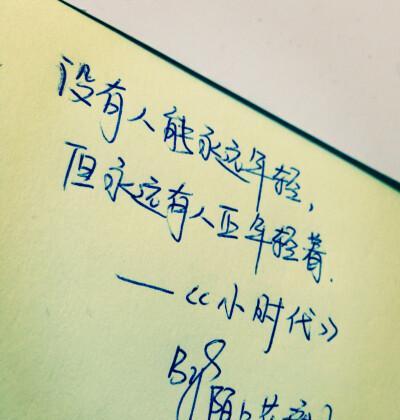 没有人能永远年轻，
但永远有人正年轻着.
——《小时代》
By